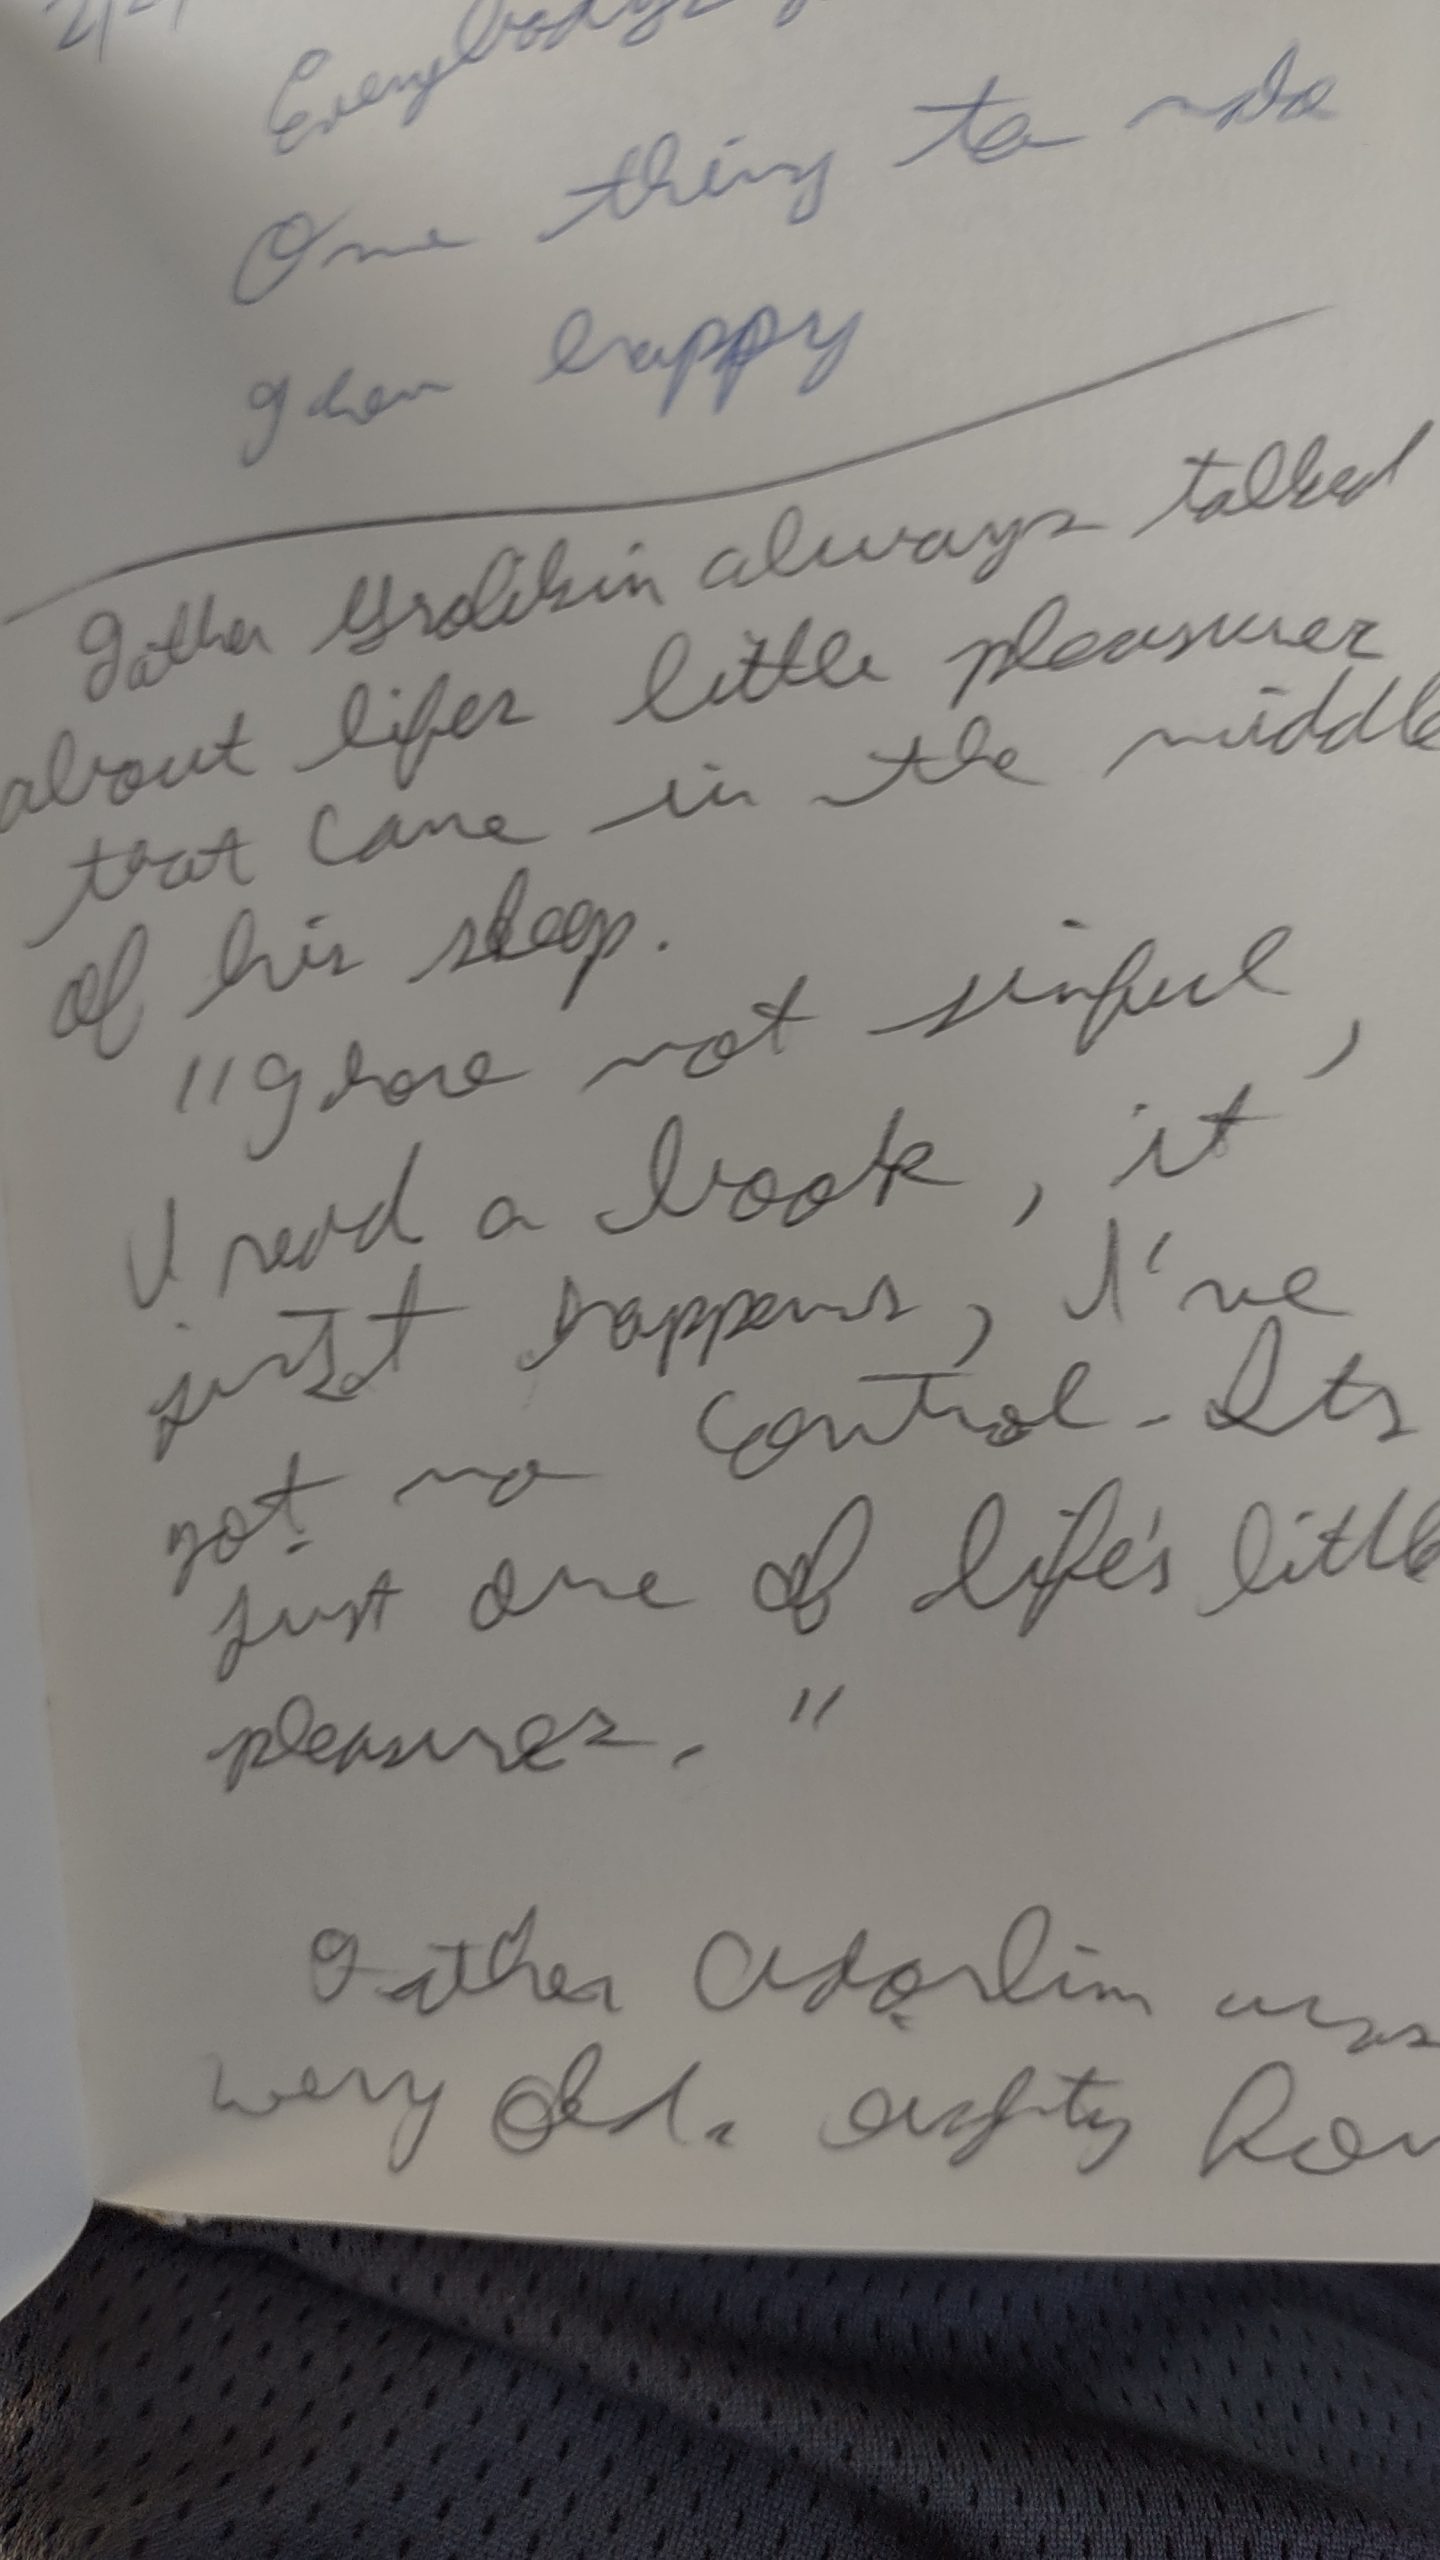 Everybody's
One thing to make
them happy
Father always talked
about lifes little pleasures
that came in the middle
of his sleep.
"Those not sinful,
I read a book, it
just happens, I've
got no control - Its
just one of life's little
pleasures."
Father was
very old.